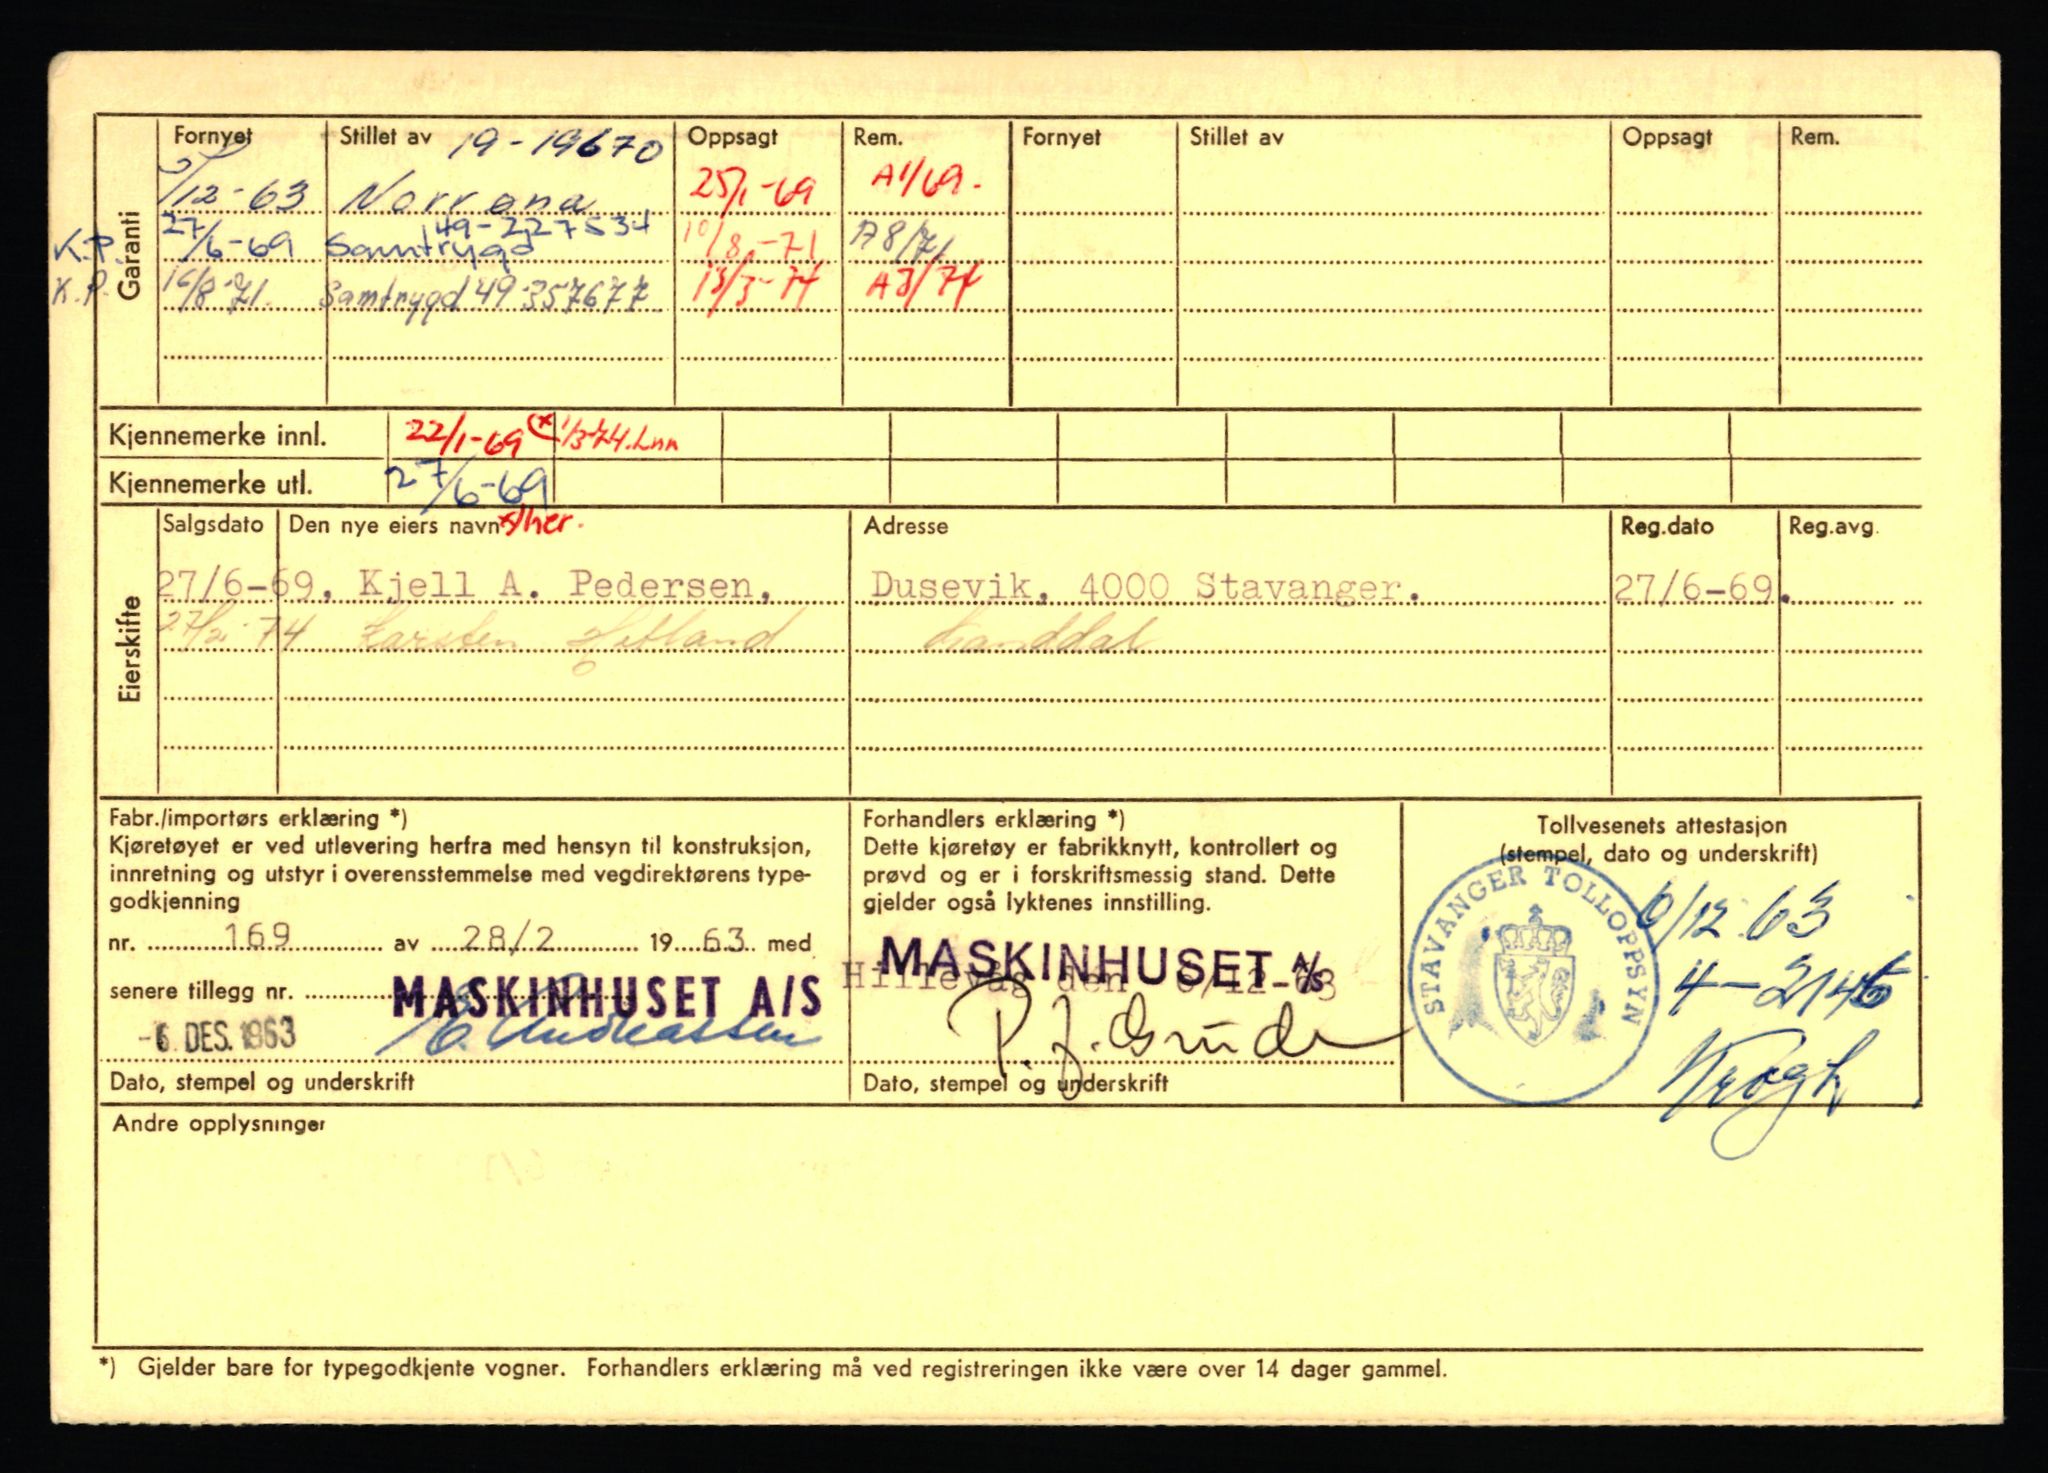 Garanti
Fornyet Stillet av 19-19670 Oppsagt Rem. Fornyet Stillet av Oppsagt Rem.
/12-63 Norrøna 25/1-69 A1/69.
K.P. 27/6-69 Samtrygd 49-227534 10/8-71 A8/71
K.P. 16/8-71. Samtrygd 49-357677 13/3-74 A3/74
Kjennemerke innl. 22/1-69 (* 1/3 74. Lnn
Kjennemerke utl. 27/6-69
Eierskifte
Salgsdato Den nye eiers navn */her. Adresse Reg.dato Reg.avg.
27/6-69. Kjell A. Pedersen, Dusevik, 4000 Stavanger. 27/6-69.
27/2-74 Karsten Hetland
Fabr./importørs erklæring *)
Kjøretøyet er ved utlevering herfra med hensyn til konstruksjon,
innretning og utstyr i overensstemmelse med vegdirektørens type-
godkjenning
nr. 169 av 28/2 1963 med
senere tillegg nr.
MASKINHUSET A/S
-6. DES. 1963
E. Andreassen
Dato, stempel og underskrift
Forhandlers erklæring *)
Dette kjøretøy er fabrikknytt, kontrollert og
prøvd og er i forskriftsmessig stand. Dette
gjelder også lyktenes innstilling.
MASKINHUSET A/S
Hillevåg den 6/12-63
P. J. Grude
Dato, stempel og underskrift
Tollvesenets attestasjon
(stempel, dato og underskrift)
STAVANGER TOLLOPPSYN
6/12 63
Krogh
Andre opplysninger
*) Gjelder bare for typegodkjente vogner. Forhandlers erklæring må ved registreringen ikke være over 14 dager gammel.